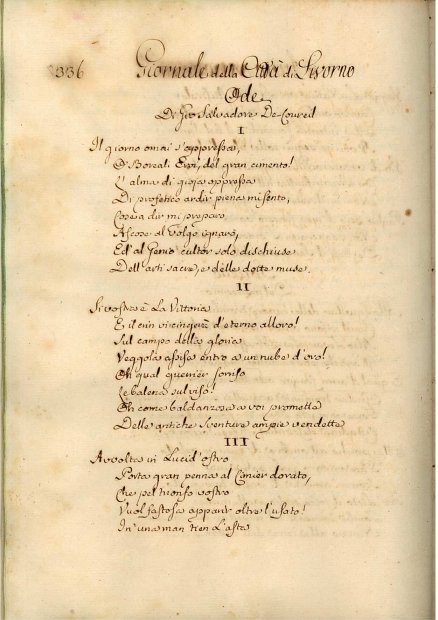 336 Giornale della Città di Livorno
Ode
Di Gio Salvadore De-Coureil
I
Il giorno omai s'appressa,
O Boreali Eroi, del gran cimento!
L'alma di gioja oppressa
Di profetico ardir piena mi sento,
Cose a dir mi preparo
Ascose al volgo ignaro,
Ed al Genio cultor solo dischiuse
Dell'arti sacre, e delle dotte muse.
II
Si vostra è La Vittoria
E il crin vi cingerà d'eterno alloro!
Sul campo della gloria
Veggola assisa entro a un nube d'oro!
Oh qual guerrier sorriso
Le balena sul viso!
Oh come baldanzosa a voi promette
Delle antiche Sventure ampie vendette
III
Avvolta in Lucid'ostro
Porta gran penna al Cimier dorato,
Che pel trionfo vostro
Vuol fastosa apparir oltre l'usato!
In una man tien L'asta